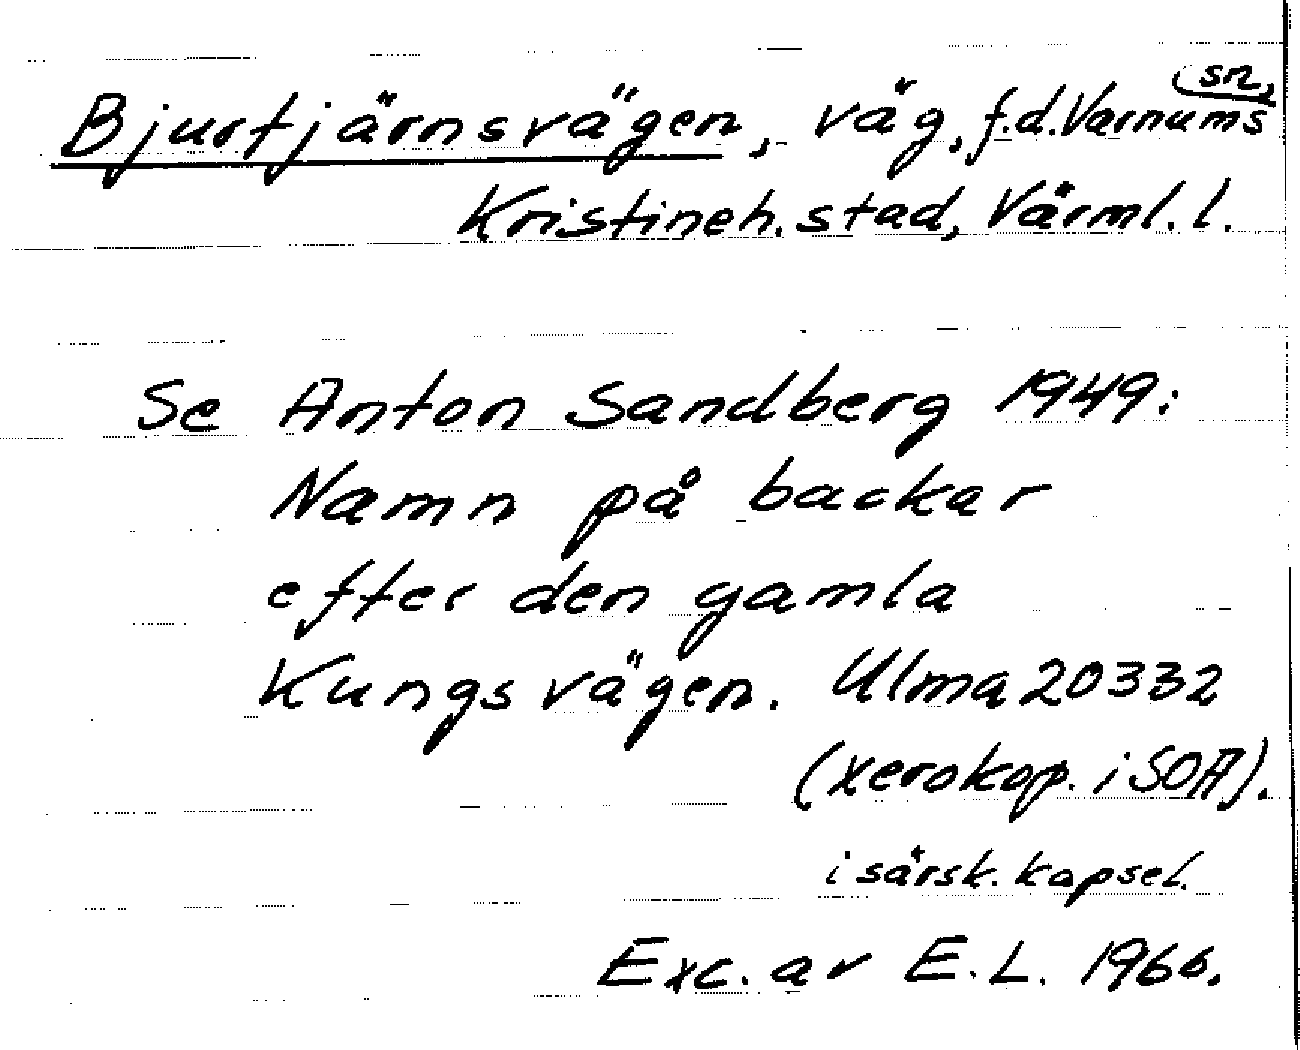 Bjurtjärnsvägen, väg, f.d. Varnums sn,
Kristineh. stad, Värml. l.
Se Anton Sandberg 1949:
Namn på backar
efter den gamla
Kungsvägen. Ulma 20332
(xerokop. i SOA).
i särsk. kapsel.
Exc. av E.L. 1966.